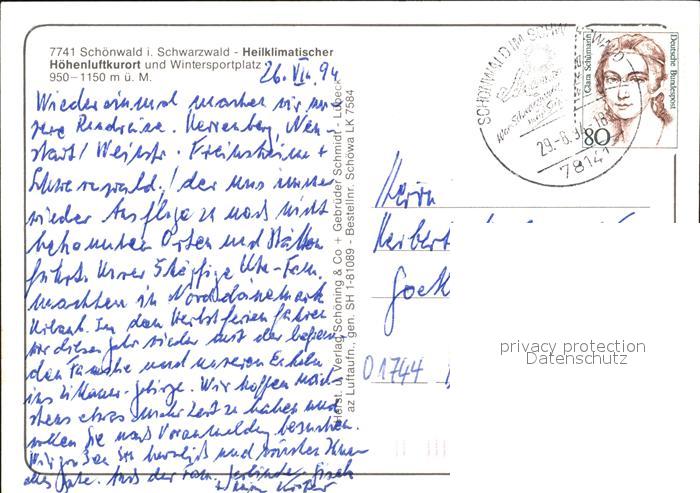 7741 Schönwald i. Schwarzwald - Heilklimatischer
Höhenluftkurort und Wintersportplatz
950–1150 m ü. M.
26. VIII. 94
Wieder einmal machen wir un-
sere Rundreise. Herrenberg, Neu-
stadt/Weinstr. Freinsheim +
Schwarzwald, der uns immer
wieder Ausflüge zu noch nicht
bekannten Orten und Stätten
führt. Unsere Ute-Fam.
machten in Norddänemark
Urlaub. In den Herbstferien fahren
wir dieses Jahr wieder mit der
den Familie und unseren Enkeln
ins Zittauer-gebirge. Wir hoffen
stens etwas mehr Zeit zu haben und
wollen Sie nach Voranmeldung besuchen.
Wir grüßen Sie herzlich und wünschen Ihnen
alles Gute. Auch der Fam.
Horst. u. Verlag Schöning & Co + Gebrüder Schmidt - Lübeck
az Luftaufn., gen. SH 1-81089 - Bestellnr. Schöwa LK 7584
SCHÖNWALD IM SCHW
29.-8.94-18
78141
Clara Schumann
Deutsche Bundespost
80
Herrn
Herbert
Goeth
01744
privacy protection
Datenschutz